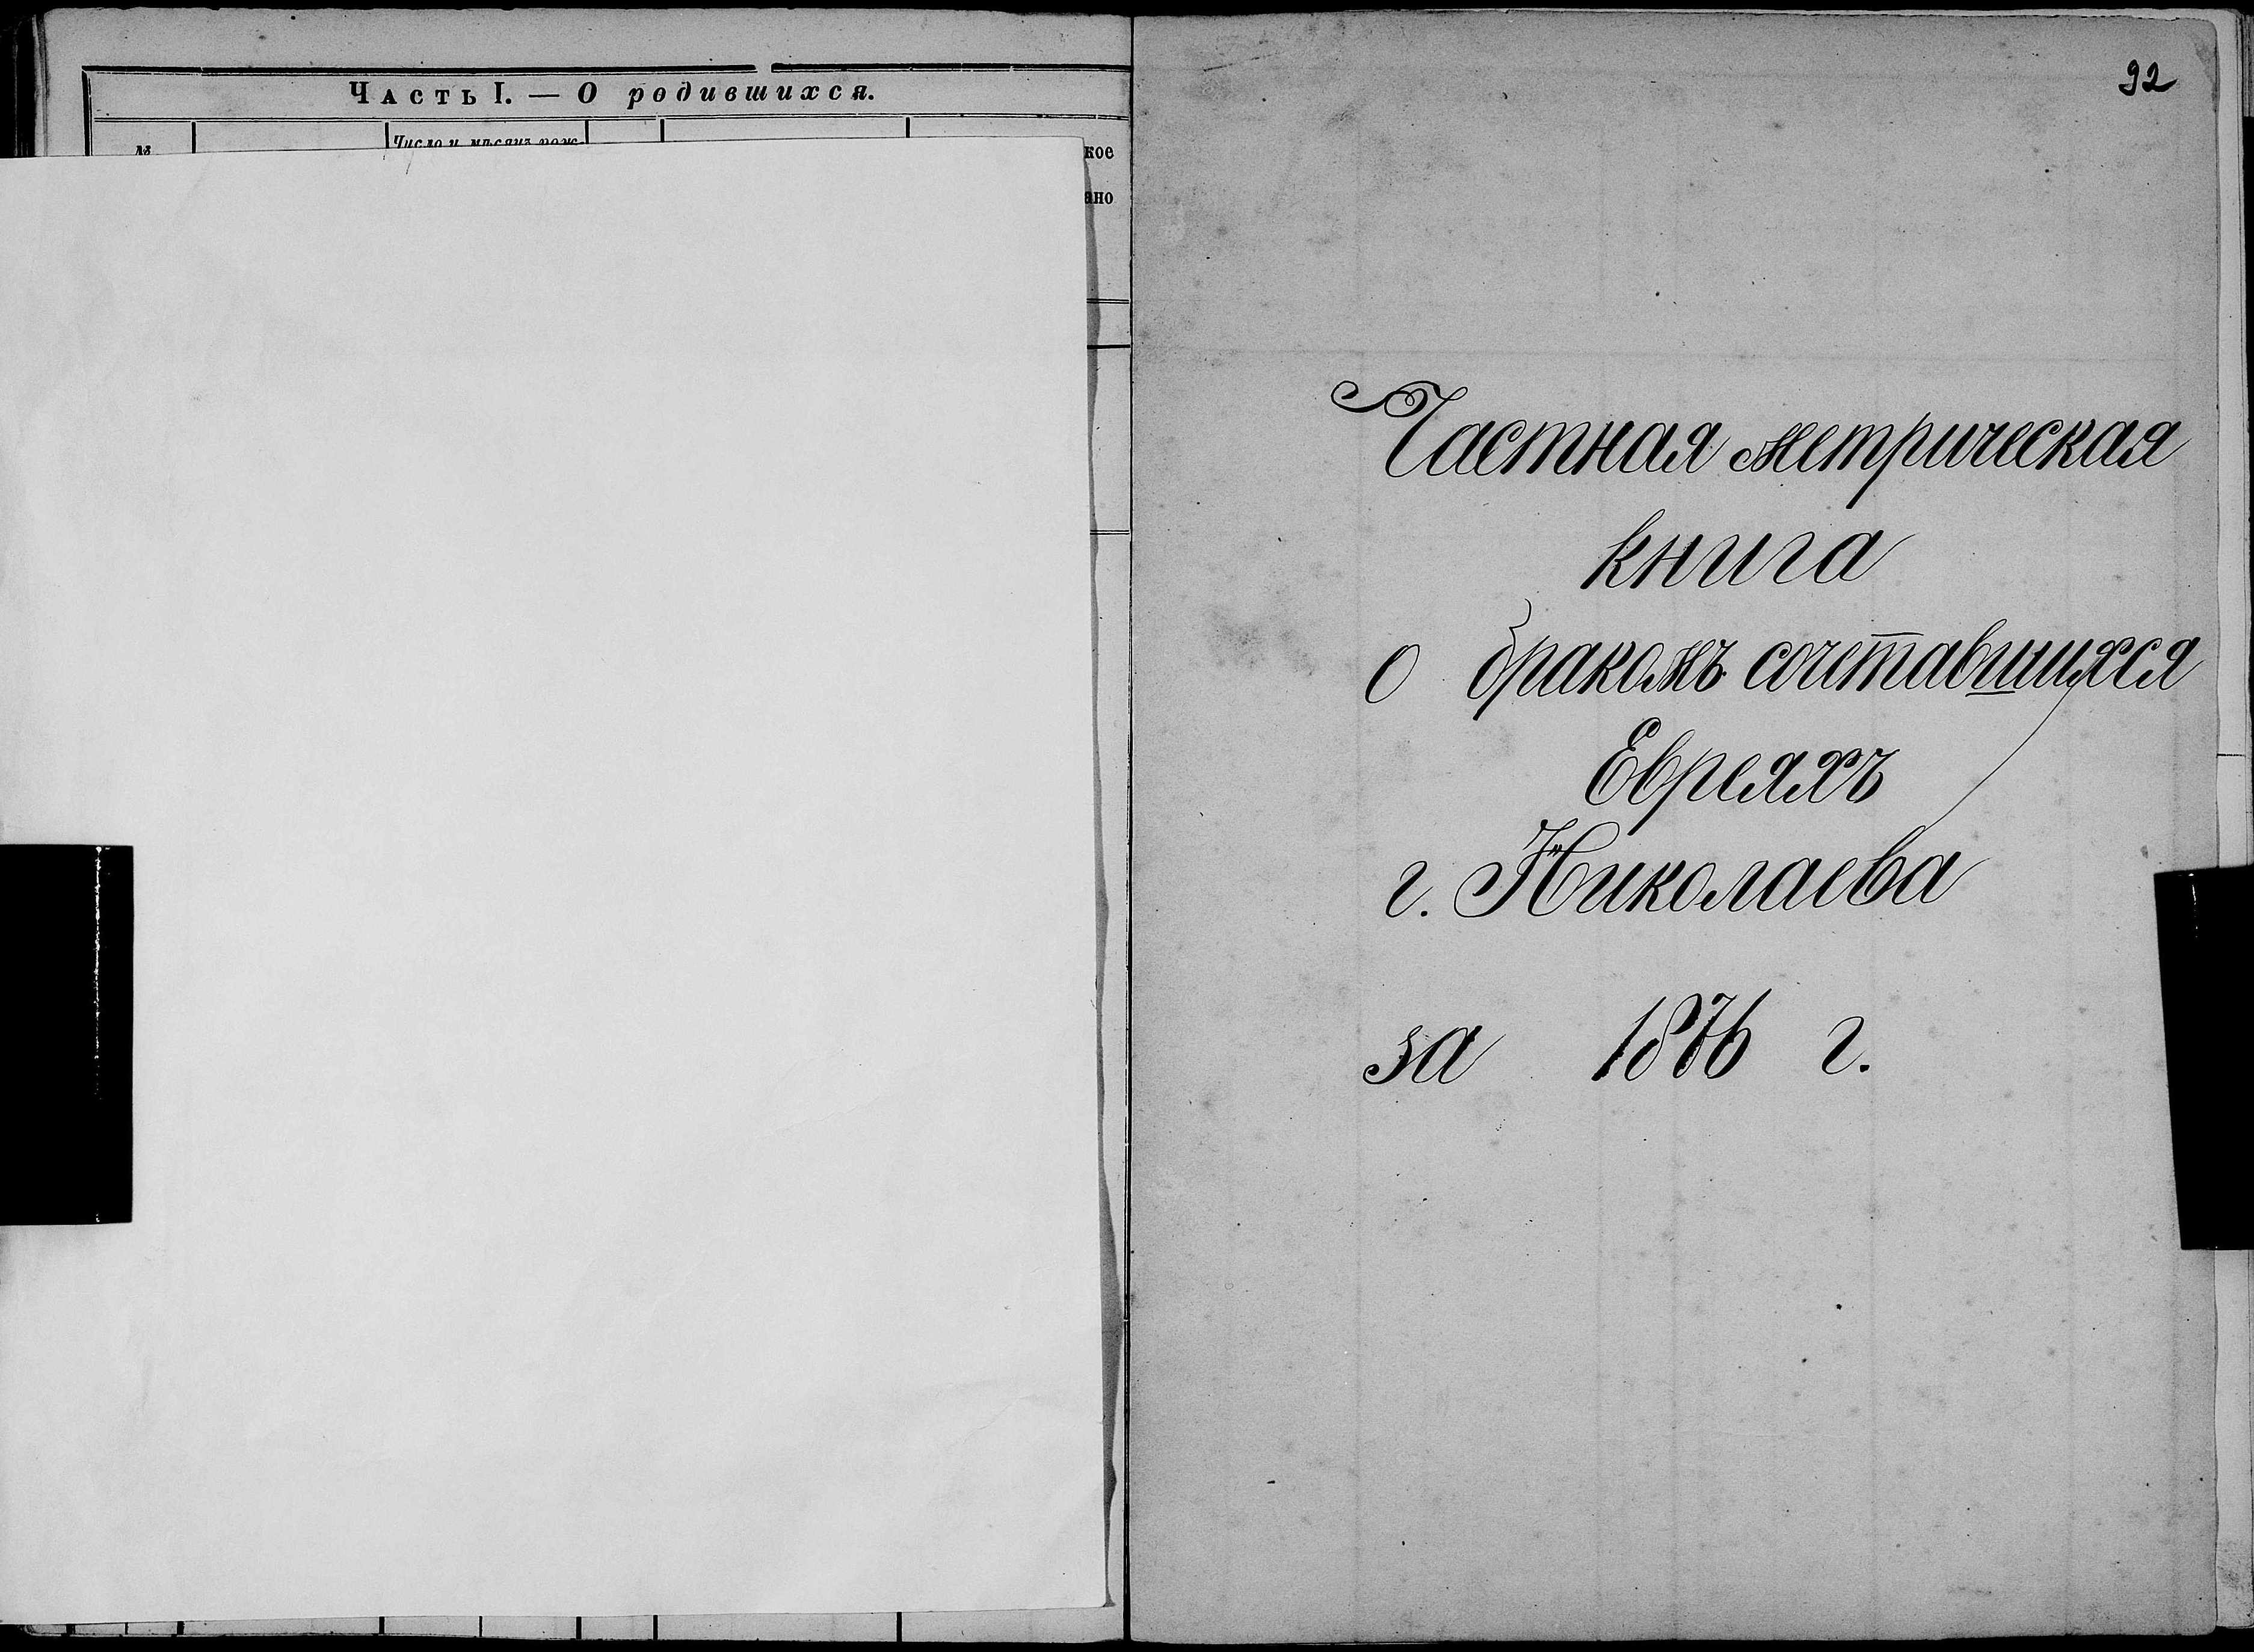 Часть I. — О родившихся.
№
Число и мѣсяцъ рож-
кое
ано
92
Частная метрическая
книга
о бракомъ сочетавшихся
Евреяхъ
г. Николаева
за 1876 г.